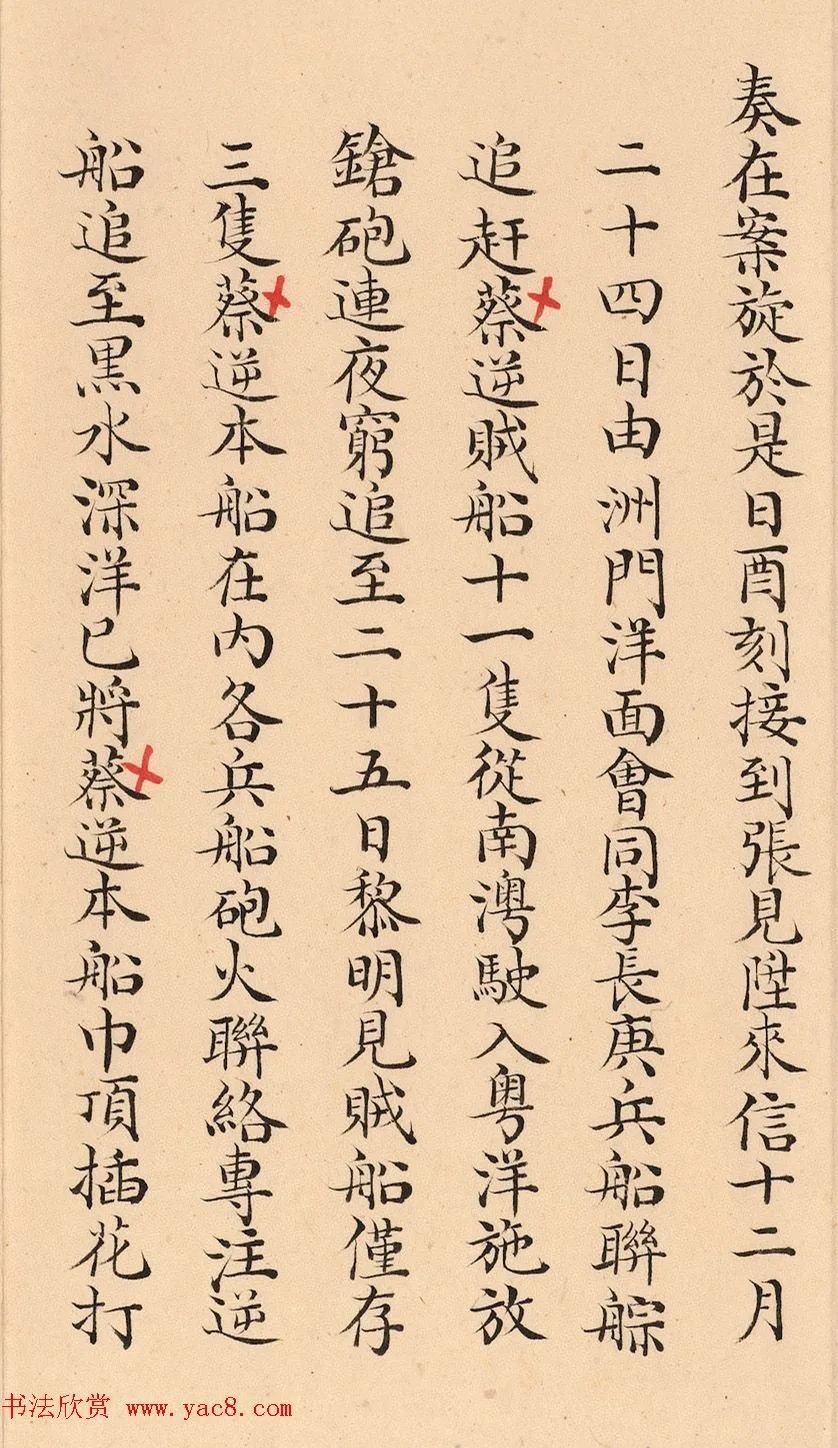 奏在案旋於是日酉刻接到張見陞來信十二月
二十四日由洲門洋面會同李長庚兵船聯䑸
追赶蔡逆賊船十一隻從南澚駛入粤洋施放
鎗砲連夜窮追至二十五日黎明見賊船僅存
三隻蔡逆本船在内各兵船砲火聯絡專注逆
船追至黒水深洋已將蔡逆本船巾頂插花打
书法欣赏 www.yac8.com